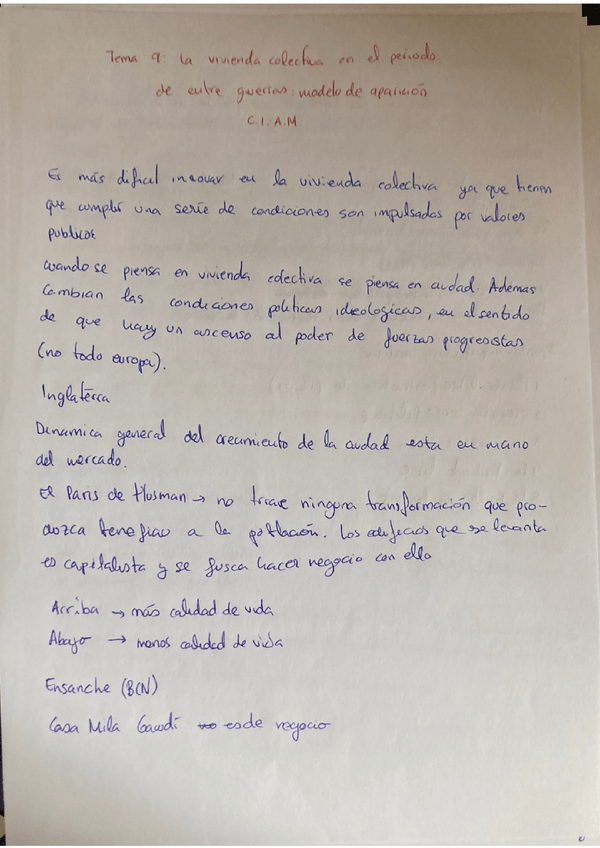 Tema 9: La vivienda colectiva en el periodo
de entre guerras: modelo de aparición
C.I.A.M
Es más dificil innovar en la vivienda colectiva ya que tienen
que cumplir una serie de condiciones son impulsados por valores
publicos.
Cuando se piensa en vivienda colectiva se piensa en ciudad. Ademas
Cambian las condiciones politicas ideologicas, en el sentido
de que hay un ascenso al poder de fuerzas progresistas
(no todo europa).
Inglaterra
Dinamica general del crecimiento de la ciudad esta en mano
del mercado.
El Paris de Husman → no trae ninguna transformación que pro-
duzca beneficio a la población. Los edificios que se levanta
es capitalista y se busca hacer negocio con ello
Arriba → más calidad de vida
Abajo → menos calidad de vida
Ensanche (BCN)
Casa Mila Gaudí es de negocio